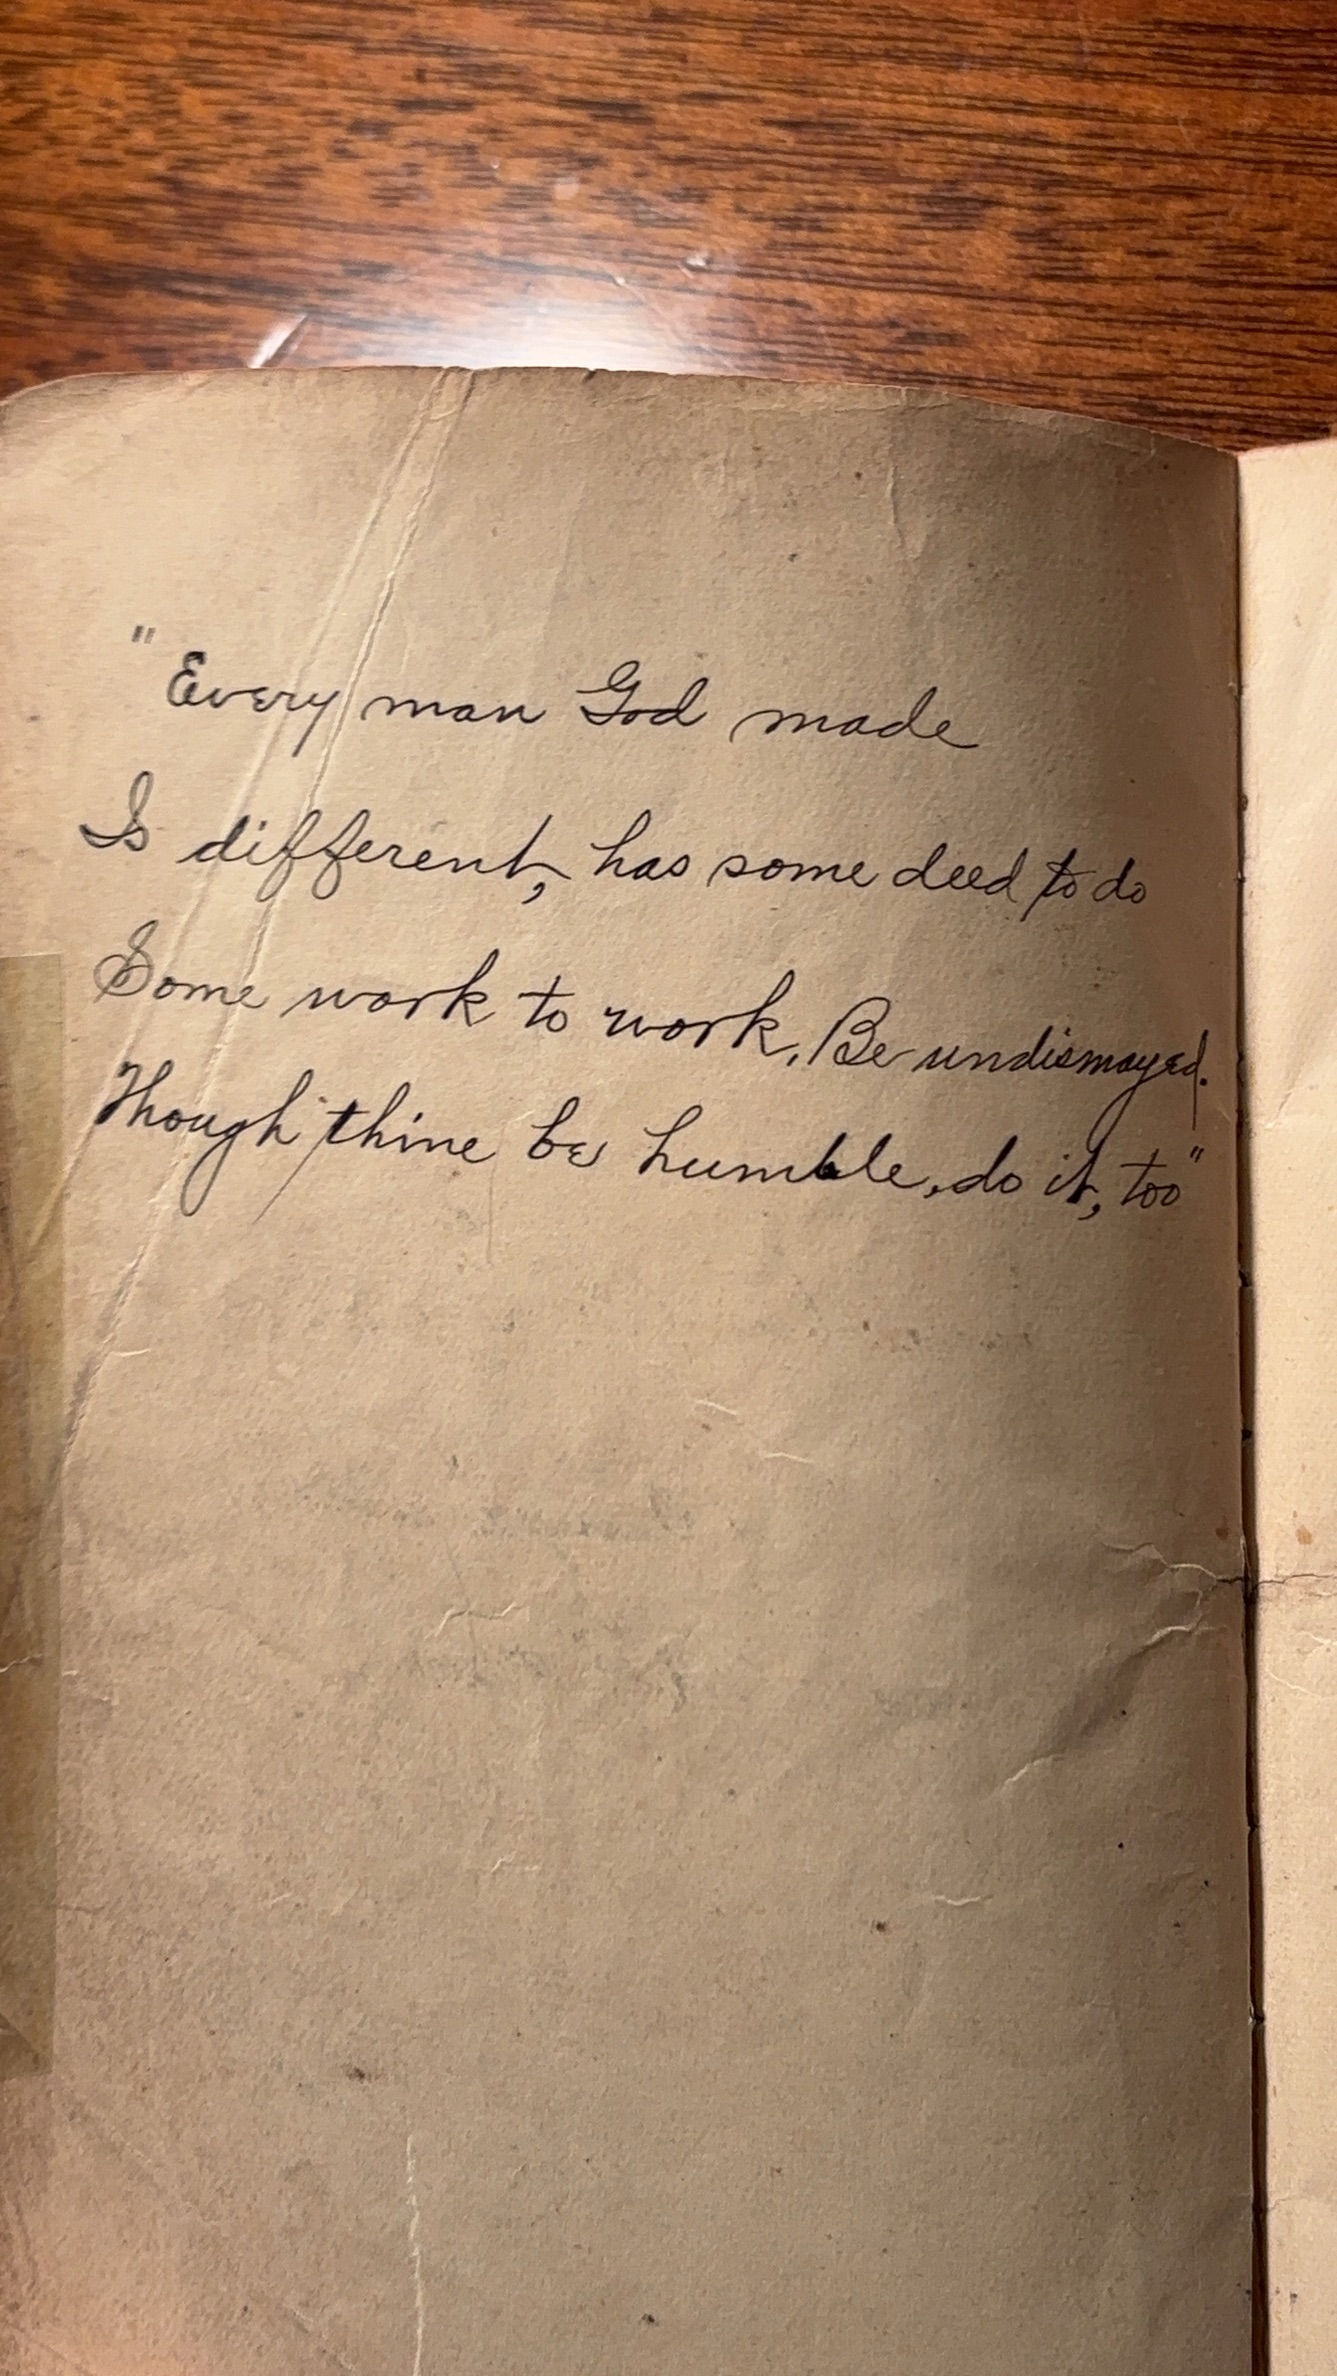 "Every man God made
Is different, has some deed to do
Some work to work. Be undismayed.
Though thine be humble, do it, too"